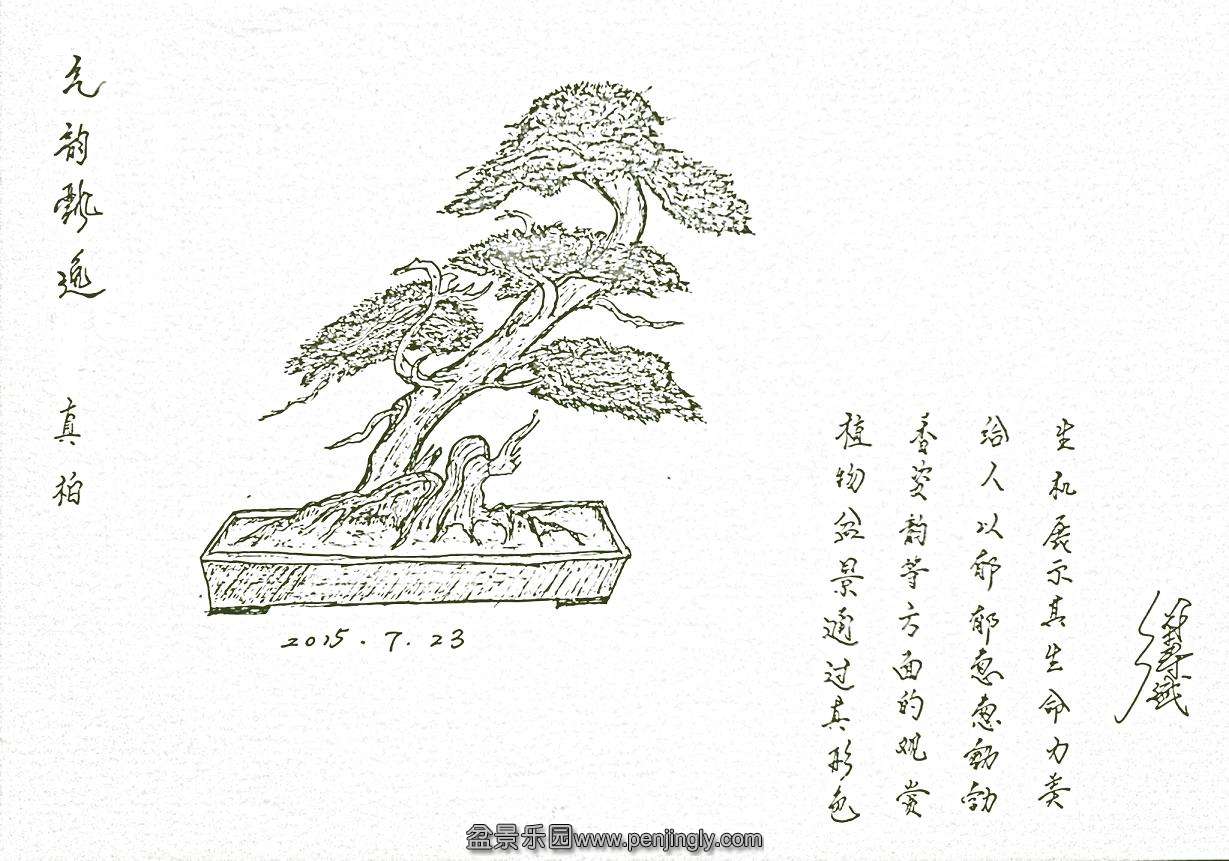 气韵飘逸
真柏
2015.7.23
植物盆景通过其形色
香姿韵等方面的观赏
给人以郁郁葱葱勃勃
生机展示其生命力美
盆景乐园www.penjingly.com